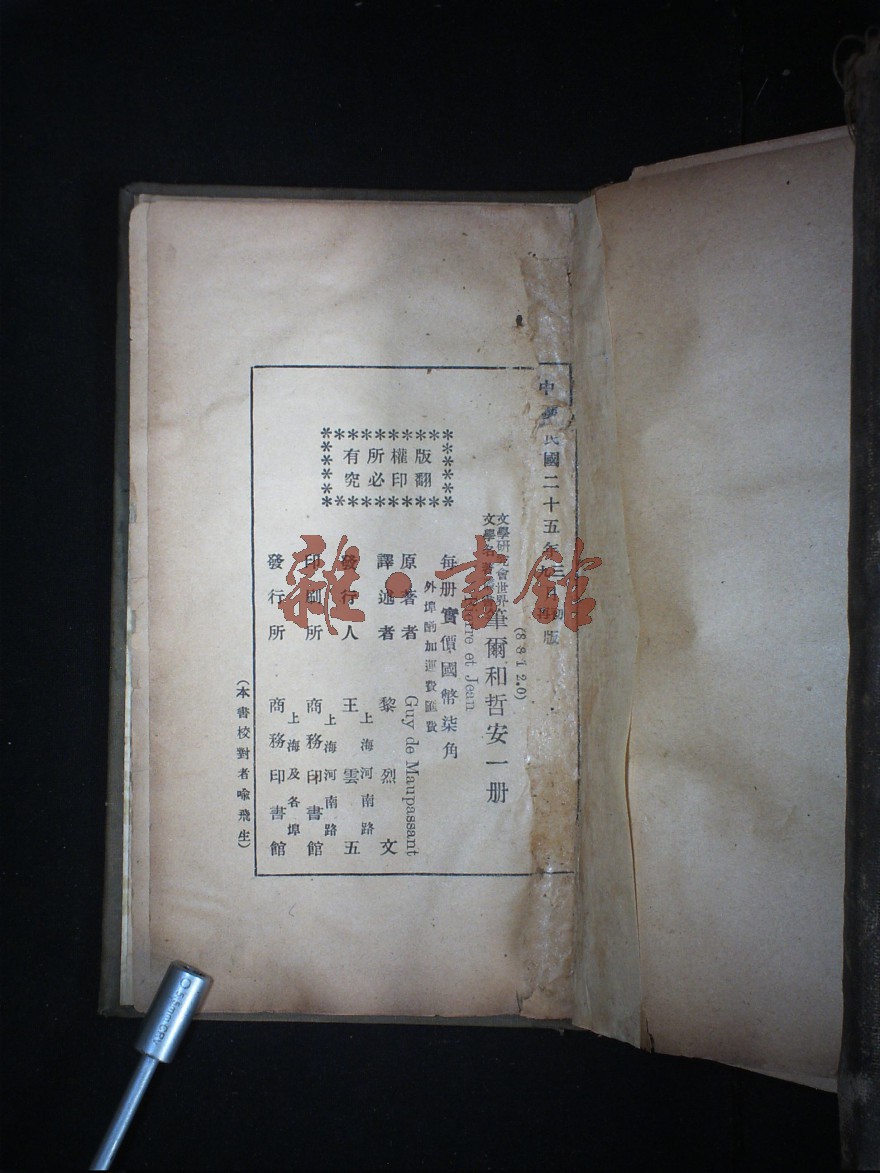 中華民國二十五年三月初版
(68120)
文學研究會世界
文學名著
筆爾和哲安一册
Pierre et Jean
每册實價國幣柒角
外埠酌加運費匯費
版權所有
翻印必究
原著者 Guy de Maupassant
譯述者 黎烈文
發行人 王雲五
上海河南路
印刷所 商務印書館
上海河南路
發行所 商務印書館
上海及各埠
(本書校對者喩飛生)
雜·書館